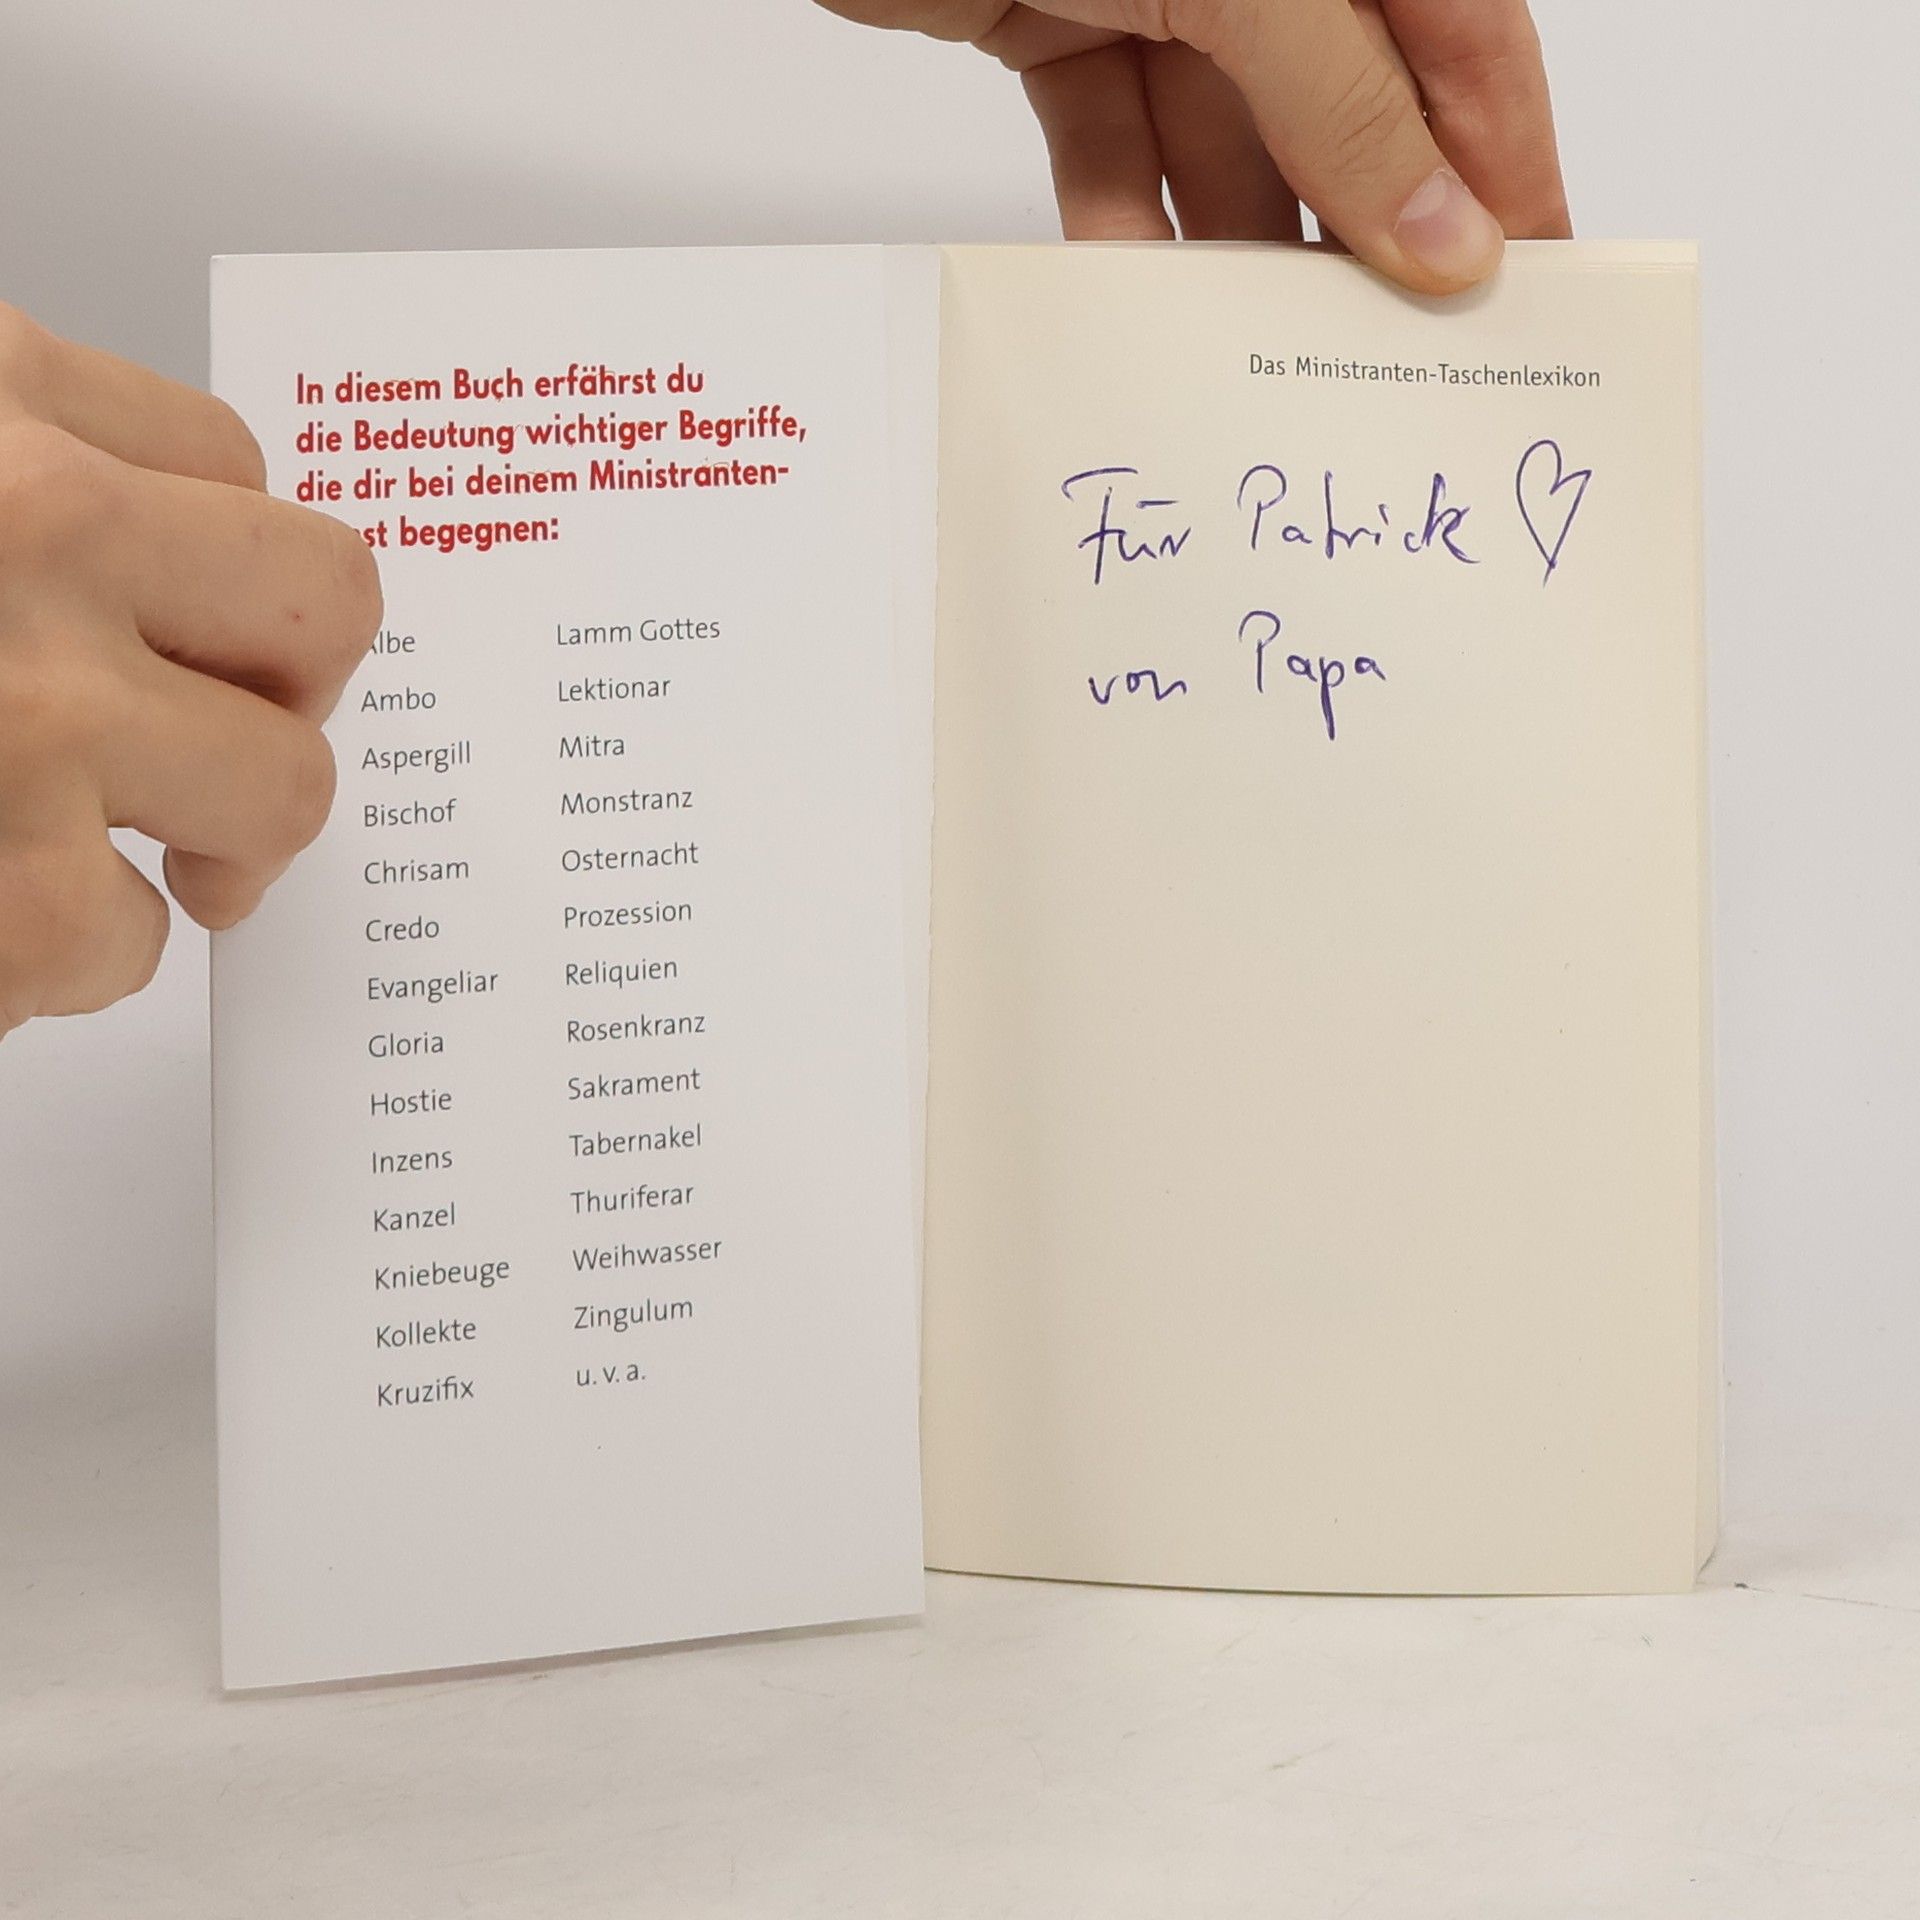 In diesem Buch erfährst du
die Bedeutung wichtiger Begriffe,
die dir bei deinem Ministranten-
st begegnen:
lbe
Ambo
Aspergill
Bischof
Chrisam
Credo
Evangeliar
Gloria
Hostie
Inzens
Kanzel
Kniebeuge
Kollekte
Kruzifix
Lamm Gottes
Lektionar
Mitra
Monstranz
Osternacht
Prozession
Reliquien
Rosenkranz
Sakrament
Tabernakel
Thuriferar
Weihwasser
Zingulum
u. v. a.
Das Ministranten-Taschenlexikon
Für Patrick ♡
von Papa